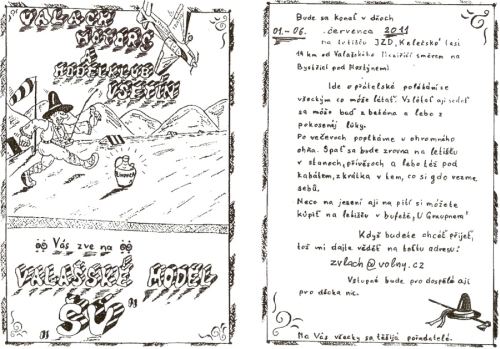 VALACH
MODELKLUB
VSETÍN
Vás zve na
VALAŠSKÉ MODEL
ŠÚ
Bude sa konať v dňoch
01.-06. července 2011
na letišťu JZD „Kelečsko" (asi
14 km od Valašského Meziříčí směrem na
Bystřici pod Hostýnem)
Ide o přátelské polétání se
všeckým co může létať. Vzlétať aji sedať
sa může buď z betónu a lebo z
pokosenej lúky.
Po večeroch popíkáme u ohromného
ohňa. Spať sa bude zrovna na letišťu
v stanoch, přívěsoch a lebo též pod
kabátem, zkrátka v tem, co si gdo vezme
sebú.
Neco na jezení aji na pití si možete
kúpiť na letišťu v bufetě „U Graupnera"
Když budete chcéť přijeť,
toš mi dajte vědět na totu adresu:
zvlach@volny.cz
Vstupné bude pro dospělé aji
pro děcka nic.
Na Vás všecky sa těšijá pořadatelé.